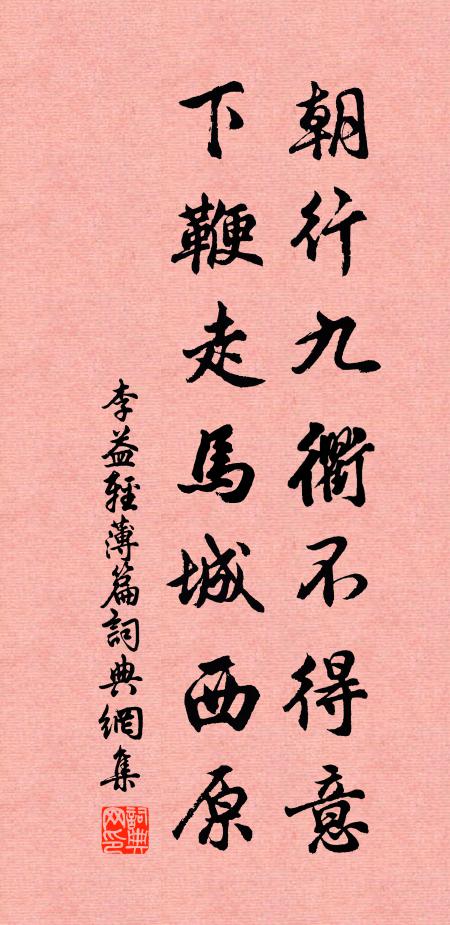 朝行九衢不得意
下鞭走馬城西原
李益輕薄篇詞典網集
詞典网印